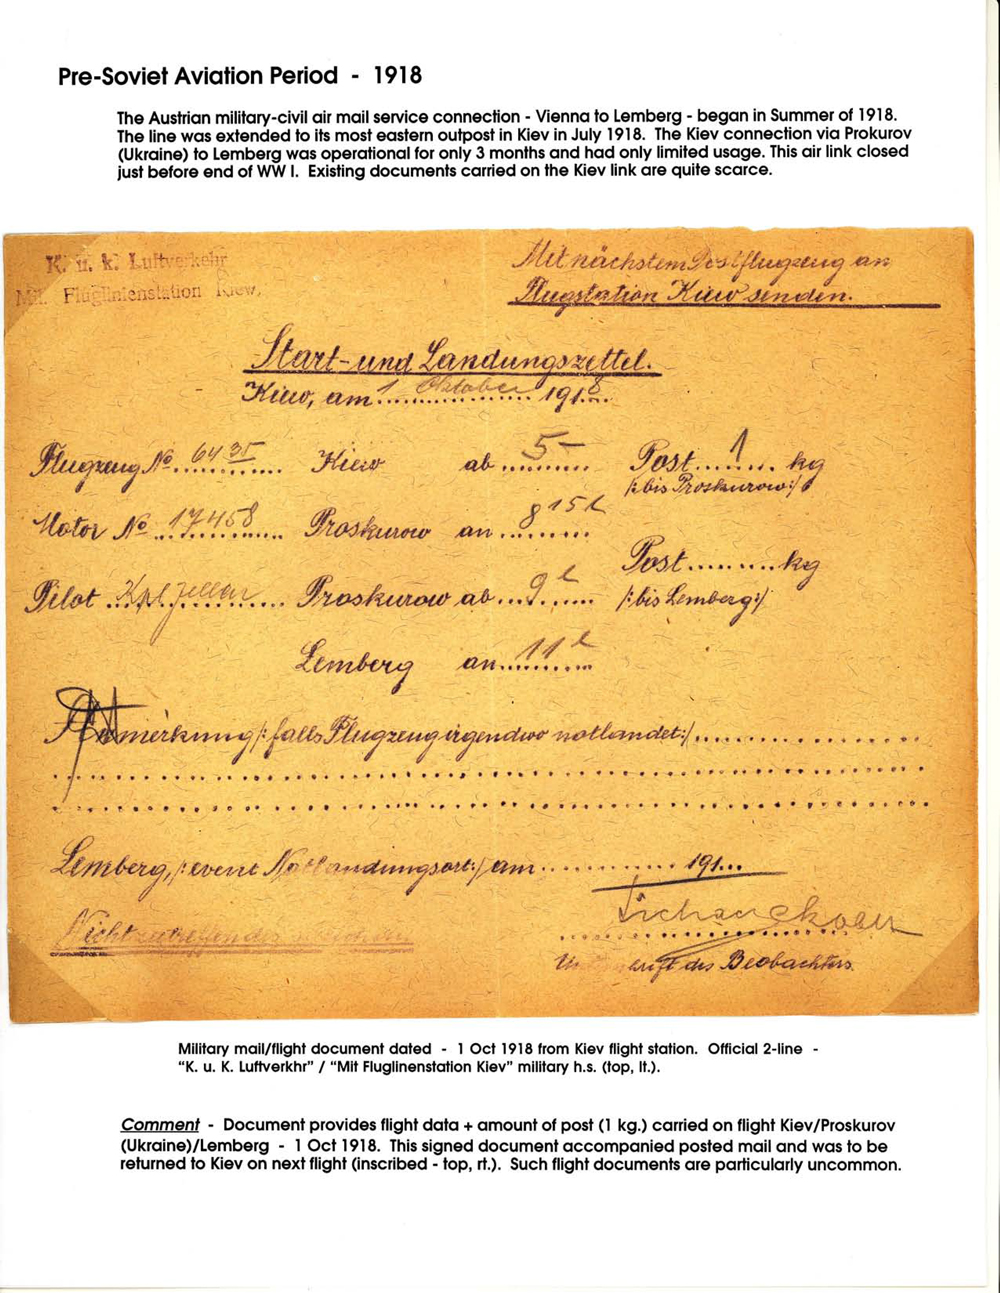 Pre-Soviet Aviation Period - 1918
The Austrian military-civil air mail service connection - Vienna to Lemberg - began in Summer of 1918.
The line was extended to its most eastern outpost in Kiev in July 1918. The Kiev connection via Prokurov
(Ukraine) to Lemberg was operational for only 3 months and had only limited usage. This air link closed
just before end of WW I. Existing documents carried on the Kiev link are quite scarce.
K. u. k. Luftverkehr
Mil. Fluglinienstation Kiew.
Mit nächstem Postflugzeug an
Flugstation Kiew senden.
Start- und Landungszettel.
Kiew, am 1 Oktober 1918
Flugzeug No. 6435 Kiew ab 5- Post 1 kg
/:bis Proskurow:/
Motor No 17458 Proskurow an 8 15
Post kg
Pilot Kpl Proskurow ab 9 /:bis Lemberg:/
Lemberg an 11
Anmerkung /:falls Flugzeug irgendwo notlandet:/
Lemberg, /:event Notlandungsort:/ am 191
Nichtzutreffendes
Unterschrift des Beobachters.
Military mail/flight document dated - 1 Oct 1918 from Kiev flight station. Official 2-line -
“K. u. K. Luftverkhr” / “Mit Fluglinenstation Kiev” military h.s. (top, lt.).
Comment - Document provides flight data + amount of post (1 kg.) carried on flight Kiev/Proskurov
(Ukraine)/Lemberg - 1 Oct 1918. This signed document accompanied posted mail and was to be
returned to Kiev on next flight (inscribed - top, rt.). Such flight documents are particularly uncommon.